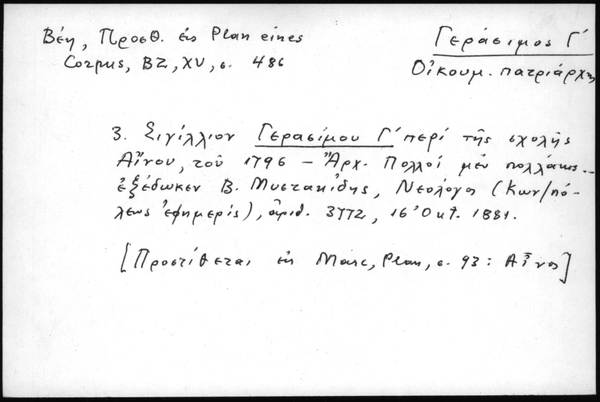 Βέη, Προσθ. εἰς Plan eines
Corpus, BZ, XV, σ. 486
Γεράσιμος Γ΄
Οἰκουμ. πατριάρχης
3. Σιγίλλιον Γερασίμου Γ΄ περὶ τῆς σχολῆς
Αἴνου, τοῦ 1796 – Ἀρχ. Πολλοὶ μὲν πολλάκις...
ἐξέδωκεν Β. Μυστακίδης, Νεολόγος (Κων/πό-
λεως ἐφημερίς), ἀριθ. 3772, 16 Ὀκτ. 1881.
[Προστίθεται εἰς Marc, Plan, σ. 93: Αἶνος]